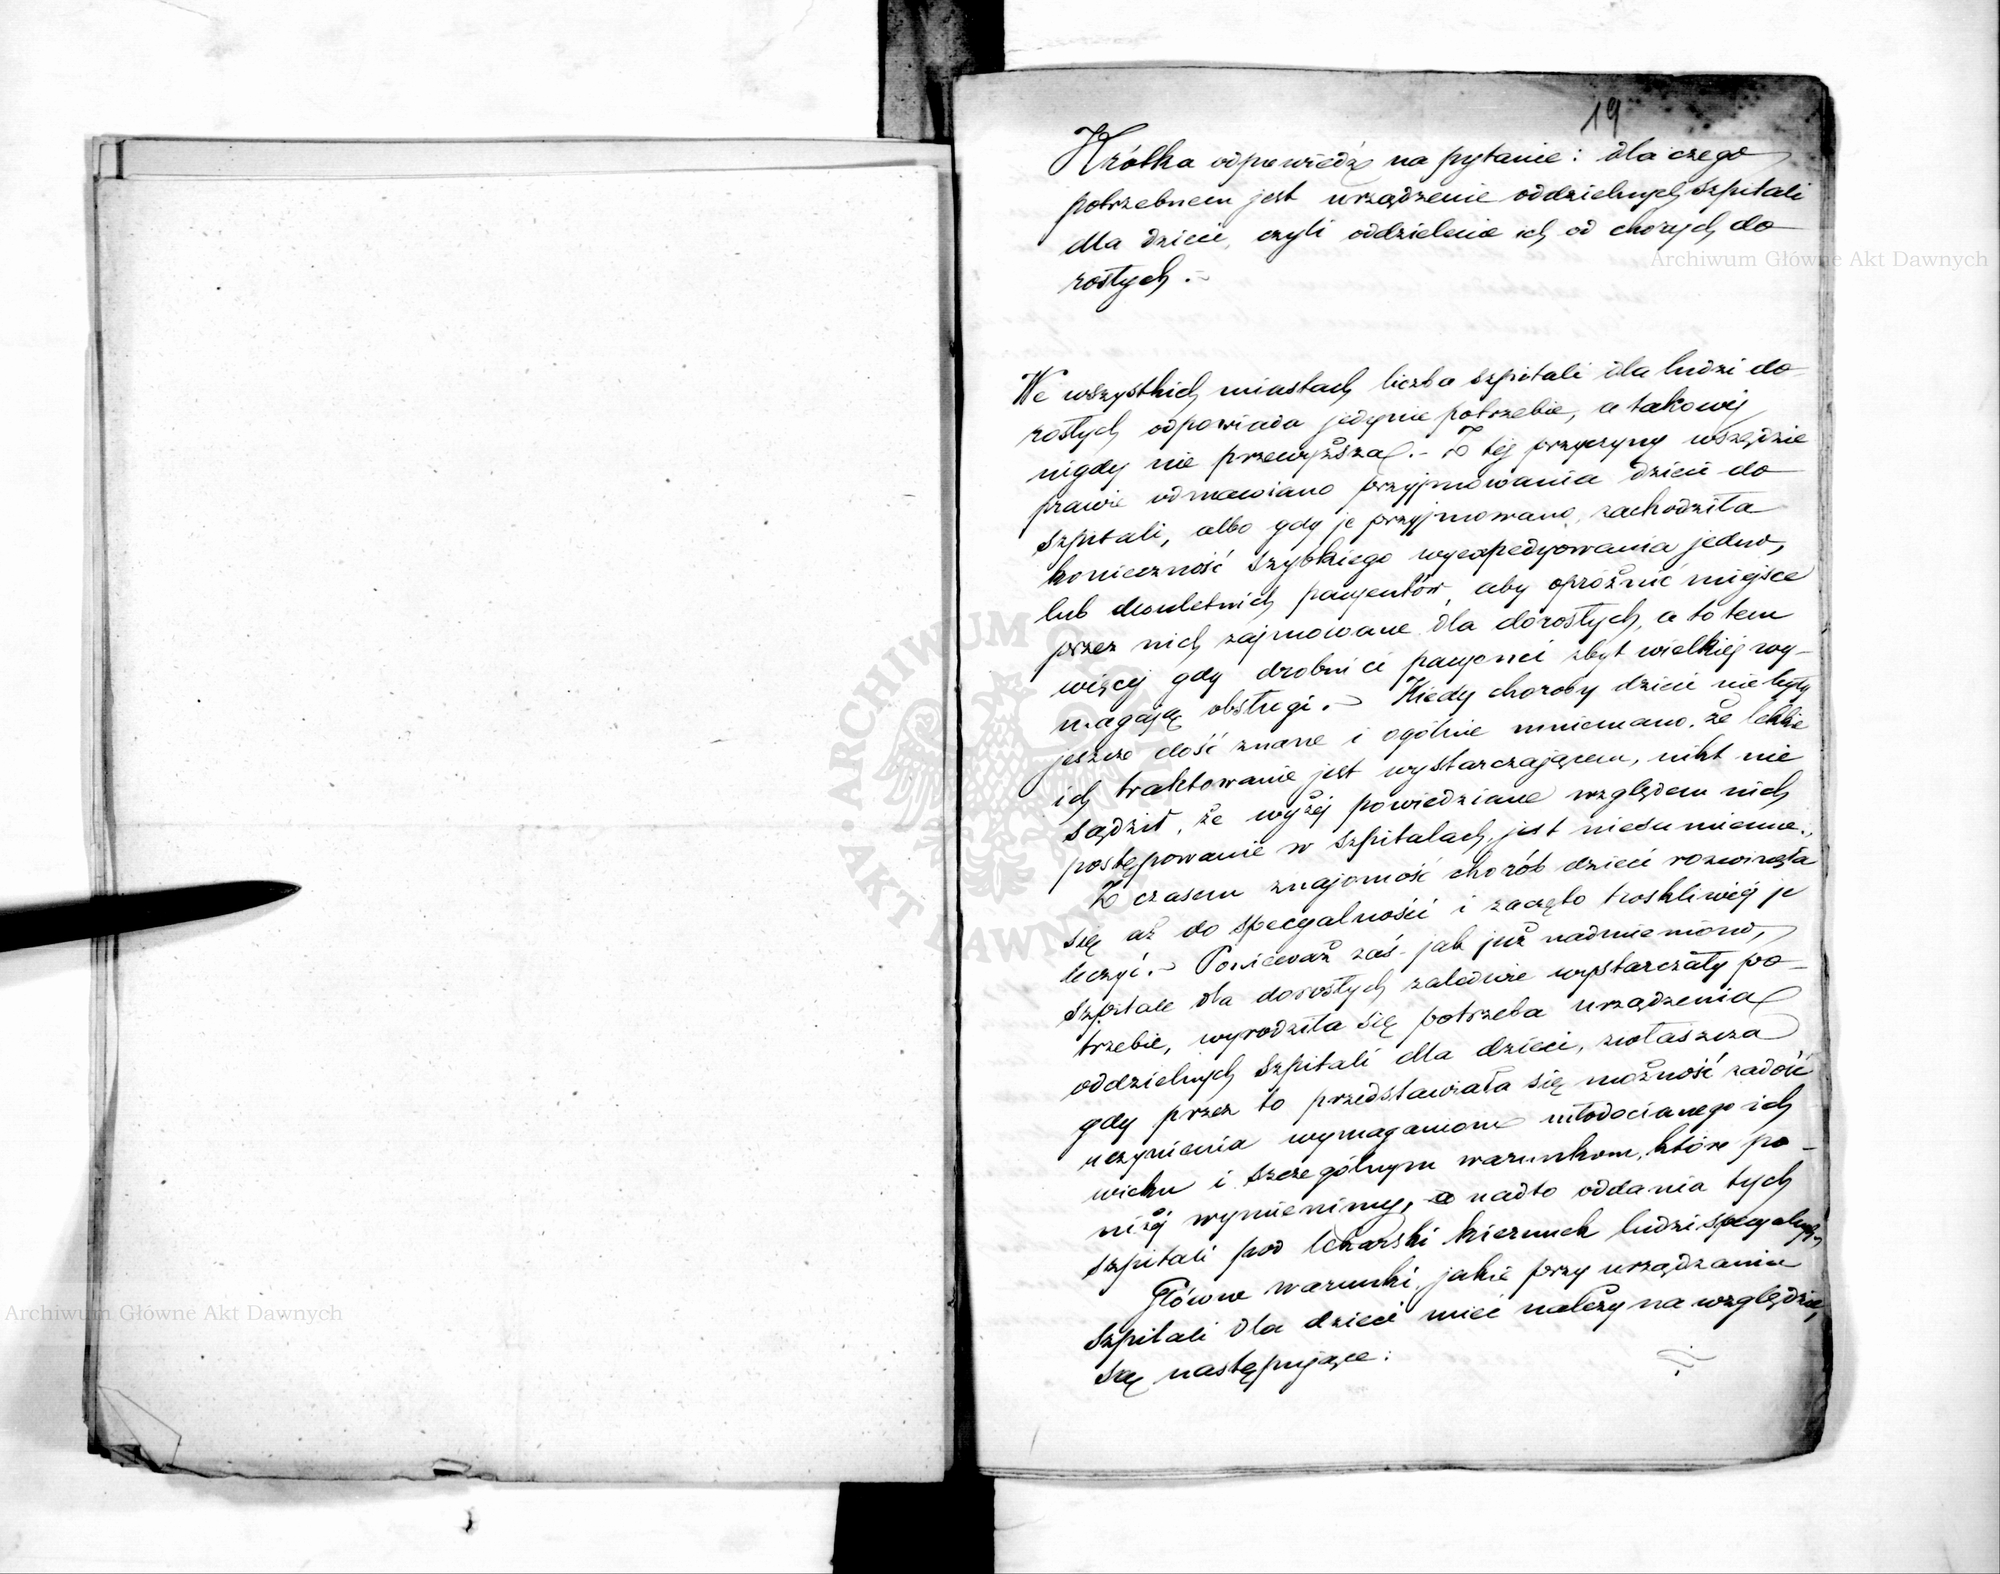 19
Krótka odpowiedź na pytanie: dla czego
potrzebnem jest urządzenie oddzielnych szpitali
dla dzieci, czyli oddzielenie ich od chorych do
rosłych.-
We wszystkich miastach liczba szpitali dla ludzi do
rosłych odpowiada jedynie potrzebie, a takowéj
nigdy nie przewyższa.- Z téj przyczyny wszędzie
prawie odmawiano przyjmowania dzieci do
szpitali, albo gdy je przyjmowano, zachodziła
konieczność szybkiego wyexpedyowania jedno,
lub dwuletnich pacyentów, aby opróżnić miejsce
przez nich zajmowane dla dorosłych, a to tem
więcéj gdy drobni ci pacyenci zbyt wielkiéj wy-
magają obsługi.- Kiedy choroby dzieci nie były
jeszcze dość znane i ogólnie mniemano, że lekkie
ich traktowanie jest wystarczającem, nikt nie
sądził, że wyżéj powiedziane względem nich
postępowanie w szpitalach, jest niesumienne.,
Z czasem znajomość chorób dzieci rozwinęła
się aż do specyalności i zaczęto troskliwiéj je
leczyć.- Ponieważ zaś jak już nadmieniono,
szpitale dla dorosłych zaledwie wystarczały po-
trzebie, wyrodziła się potrzeba urządzenia
oddzielnych szpitali dla dzieci, zwłaszcza
gdy przez to przedstawiała się możność zadość
uczynienia wymaganiom młodocianego ich
wieku i szczególnym warunkom, które po-
niżéj wymienimy, a nadto oddania tych
szpitali pod lekarski kierunek ludzi specyalnych.
Główne warunki, jakie przy urządzaniu
szpitali dla dzieci mieć należy na względzie,
są następujące:
Archiwum Główne Akt Dawnych
Archiwum Główne Akt Dawnych
ARCHIWUM GŁÓWNE AKT DAWNYCH